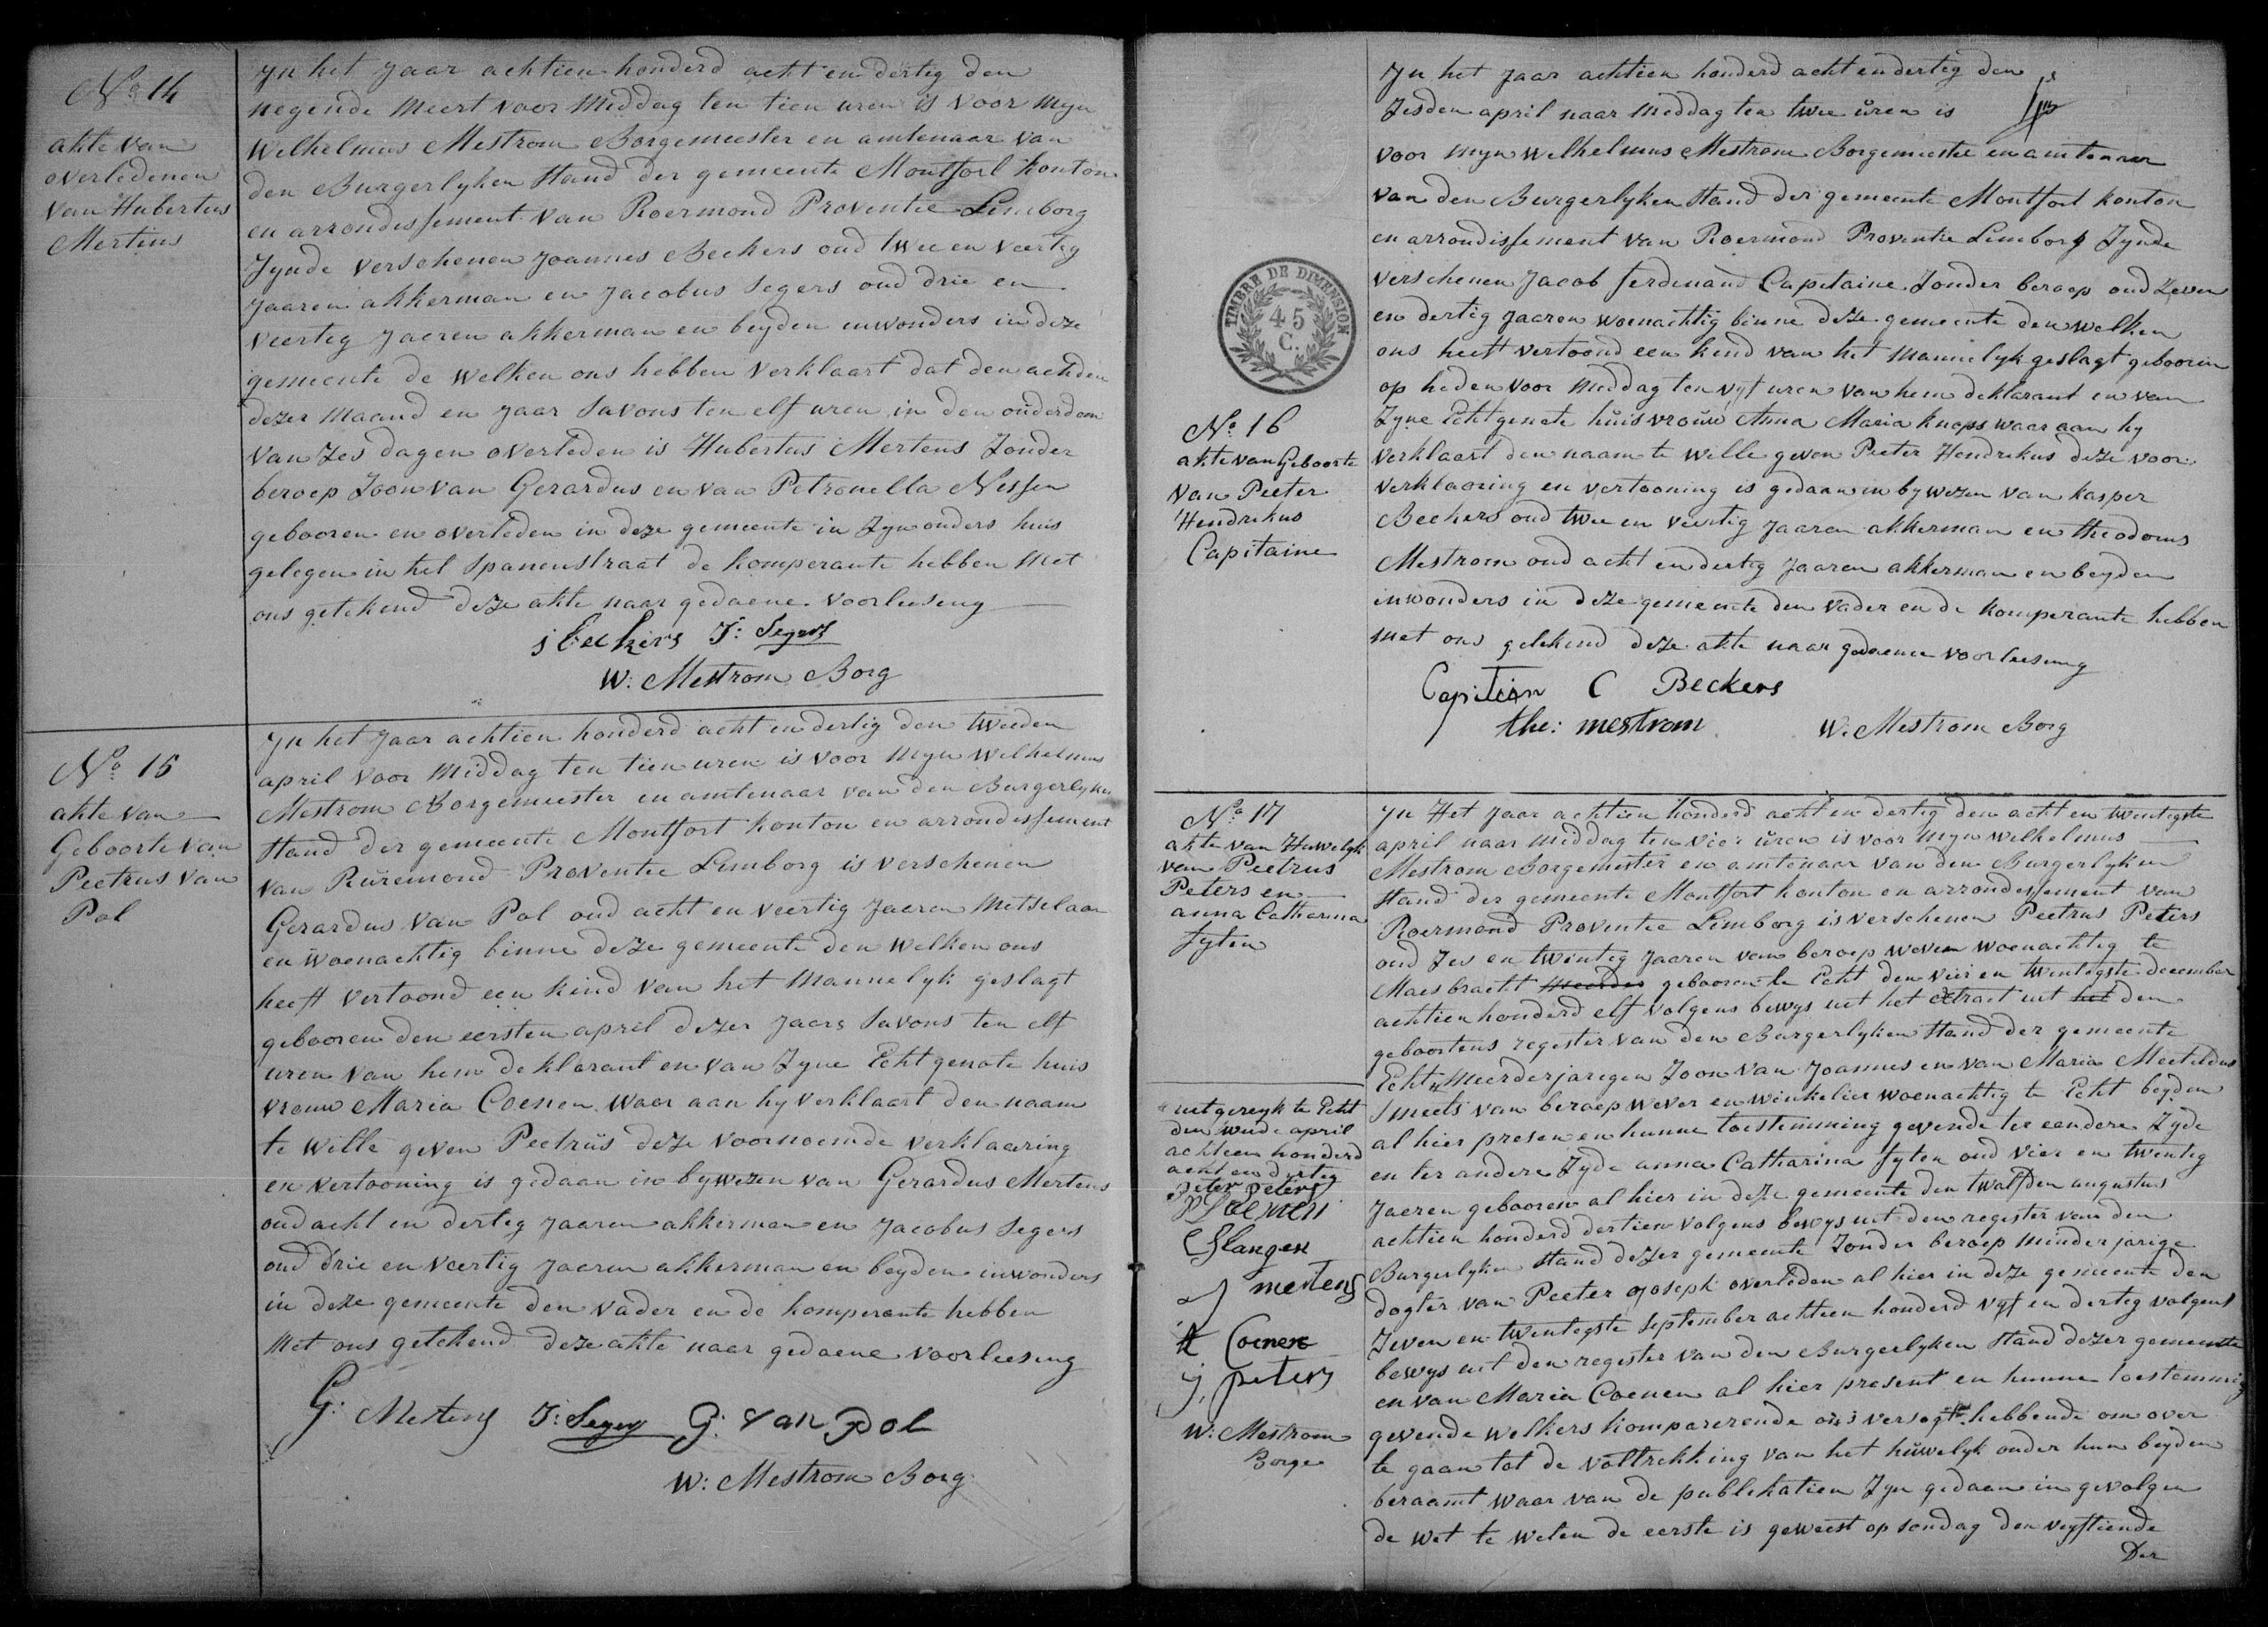 No 14
akte van
overledenen
van Hubertus
Mertens
Jn het Jaar achtien honderd acht en dertig den
negende Meert voor Middag ten tien uren is voor Myn
Wilhelmus Mestrom Borgemeester en amtenaar van
den Burgerlyken Stand der gemeente Montfort konton
en arrondissement van Roermond Proventie Limborg
Zynde verschenen Joannes Beckers oud twee en veertig
Jaaren akkerman en Jacobus Segers oud drie en
veertig Jaeren akkerman en beyden inwonders in deze
gemeente de welken ons hebben verklaart dat den achden
dezer Maand en Jaar Savons ten elf uren in den ouderdom
van Zes dagen overleden is Hubertus Mertens Zonder
beroep Zoon van Gerardus en van Petronella Nessen
gebooren en overleden in deze gemeente in Zyn onders huis
gelegen in het Spanenstraat de komperante hebben Met
ons getekend deze akte naar gedaene voorleesing
j beckers J: Segers
W: Mestrom Borg
No 15
akte van
Geboorte van
Peetrus van
Pol
Jn het Jaar achtien honderd acht en dertig den tweeden
april voor Middag ten tien uren is voor Myn Wilhelmus
Mestrom Borgemeester en amtenaar van den Burgerlyken
Stand der gemeente Montfort konton en arrondissement
van Rüremond Proventie Limborg is verschenen
Gerardus van Pol oud acht en veertig Jaeren Metselaar
en woenachtig binne deze gemeente den welken ons
heeft vertoond een kind van het Mannelyk geslagt
gebooren den eersten april dezer Jaars Savons ten elf
uren van hem deklarant en van Zyne Echtgenote huis
vrouw Maria Coenen waar aan hy verklaart den naam
te wille geven Peetrüs deze voornoemde verklaaring
en vertooning is gedaan in bywezen van Gerardus Mertens
oud acht en dertig Jaaren akkerman en Jacobus Segers
oud drie en veertig Jaeren akkerman en beyden inwonders
in deze gemeente den vader en de komperante hebben
Met ons getekend deze akte naar gedaene voorleesing
G: Mertens J: Segers G: van Pol
W: Mestrom Borg
TIMBRE DE DIMENSION
45
C.
No 16
akte van Geboorte
van Peeter
Hendrikus
Capitaine
Jn het Jaar achtien honderd acht en dertig den
Zesden april naar Middag ten twee üren is
voor Myn Wilhelmus Mestrom Borgemeester en amtenaar
van den Burgerlyken Stand der gemeente Montfort konton
en arrondissement van Roermond Proventie Limborg Zynde
verschenen Jacob ferdinand Capitaine Zonder beroep oud Zeven
en dertig Jaaren woenachtig binne deze gemeente den welken
ons heeft vertoond een kind van het Mannelyk geslagt gebooren
op heden voor Middag ten vyf uren van hem deklarant en van
Zyne Echtgenote huis vroüw Anna Maria knops waar aan hy
verklaart den naam te wille geven Peeter Hendrikus deze voor
verklaaring en vertooning is gedaan in bywezen van kasper
Beckers oud twee en veertig Jaaren akkerman en theodorus
Mestrom oud acht en dertig Jaaren akkerman en beyden
inwonders in deze gemeente den vader en de komperante hebben
met ons getekend deze akte naar gedaene voorleesing
Capitien C Beckers
the: mestrom W. Mestrom Borg
No 17
akte van Huwelyk
van Peetrus
Peters en
anna Catharina
fyten
Jn Het Jaar achtien honderd acht en dertig den acht en twintigste
april naar middag ten vier üren is voor Myn Wilhelmus
Mestrom Borgemeister en amtenaar van den Burgerlyken
Stand der gemeente Montfort konton en arrondissement van
Roermond Proventie Limborg is verschenen Peetrus Peters
oud Zes en twintig Jaaren van beroep weven woenachtig te
Maesbracht gebooren te Echt den vier en twintigste december
achtien honderd elf volgens bewys uit het extract uit het den
geboortens register van den Burgerlyken Stand der gemeente
Echt Meerderjarigen Zoon van Joannes en van Maria Mectildus
Smeets van beroep wever en winkelier woenachtig te Echt beyden
al hier presen en hunne toestemming gevende ter eendere Zyde
en ter andere Zyde anna Catharina fyten oud vier en twintig
Jaeren gebooren al hier in deze gemeente den twalfden augustus
achtien honderd dertien volgens bewys uit den register van den
Burgerlyken Stand dezer gemeente Zonder beroep Minder jarige
dogter van Peeter Joseph overleden al hier in deze gemeente den
Zeven en twintigste September achtien honderd vyf en dertig volgens
bewys uit den register van den Burgerlyken Stand dezer gemeente
en van Maria Coenen al hier present en hunne toestemming
gevende welkers komparerende ons versogt hebbende om over
te gaan tot de voltrekking van het hüwelyk onder hun beyden
beraamt waar van de publikatien Zyn gedaan in gevolgen
de wet te weten de eerste is geweest op sondag den vyftiende
Der
uitgereyk te Echt
april
achtien honderd
acht en dertig
Peter Peters
Slangen
J mertens
Coenen
j. peters
W: Mestrom
Borge